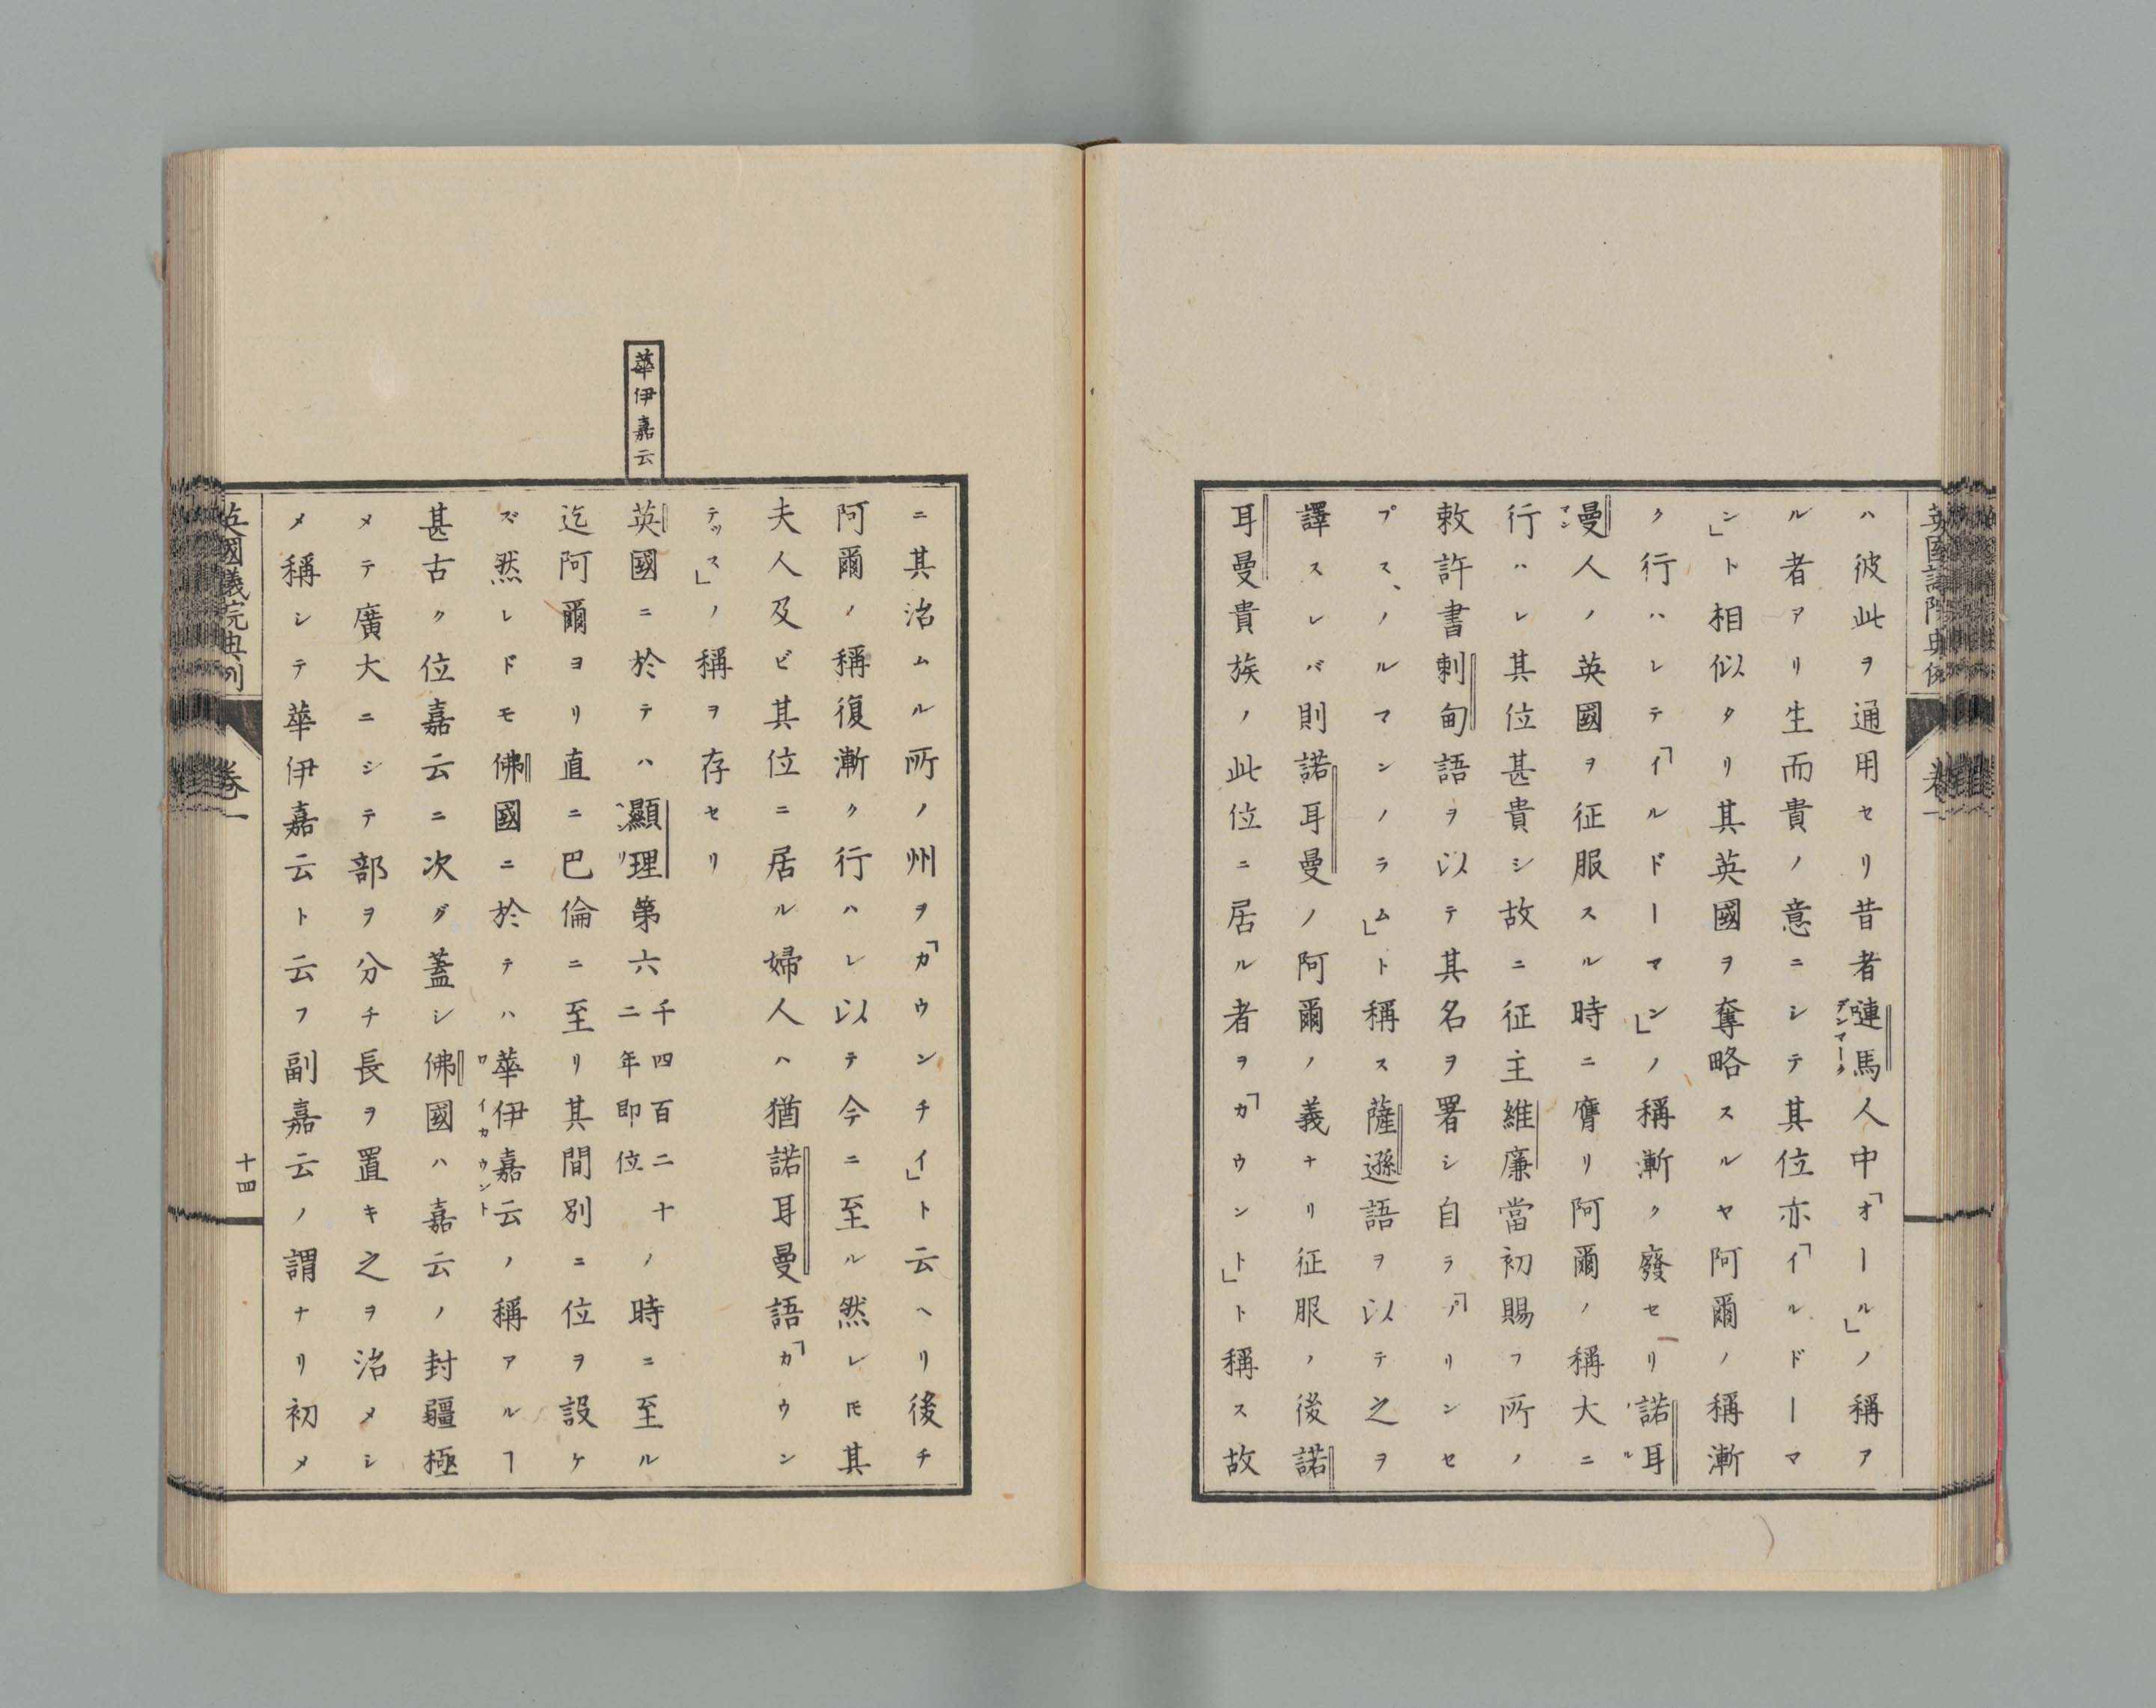 英國議院典例 卷一
ハ彼此ヲ通用セリ昔者璉馬人中「オール」ノ稱ア
デンマーク
ル者アリ生而貴ノ意ニシテ其位亦「イルドーマ
ン」ト相似タリ其英國ヲ奪略スルヤ阿爾ノ稱漸
ク行ハレテ「イルドーマン」ノ稱漸ク廢セリ諾耳
ノル
曼人ノ英國ヲ征服スル時ニ膺リ阿爾ノ稱大ニ
マン
行ハレ其位甚貴シ故ニ征主維廉當初賜フ所ノ
敕許書剌甸語ヲ以テ其名ヲ署シ自ラ「プリンセ
プス、ノルマンノラム」ト稱ス薩遜語ヲ以テ之ヲ
譯スレバ則諾耳曼ノ阿爾ノ義ナリ征服ノ後諾
耳曼貴族ノ此位ニ居ル者ヲ「カウント」ト稱ス故
ニ其治ムル所ノ州ヲ「カウンチイ」ト云ヘリ後チ
阿爾ノ稱復漸ク行ハレ以テ今ニ至ル然レ𪜈其
夫人及ビ其位ニ居ル婦人ハ猶諾耳曼語「カウン
テッス」ノ稱ヲ存セリ
華伊嘉云
英國ニ於テハ顯理第六千四百二十二年即位ノ時ニ至ル
ヘンリ
迄阿爾ヨリ直ニ巴倫ニ至リ其間別ニ位ヲ設ケ
ズ然レドモ佛國ニ於テハ華伊嘉云ノ稱アルヿ
ワイカウント
甚古ク位嘉云ニ次グ蓋シ佛國ハ嘉云ノ封疆極
メテ廣大ニシテ部ヲ分チ長ヲ置キ之ヲ治メシ
メ稱シテ華伊嘉云ト云フ副嘉云ノ謂ナリ初メ
英國議院典例 卷一 十四